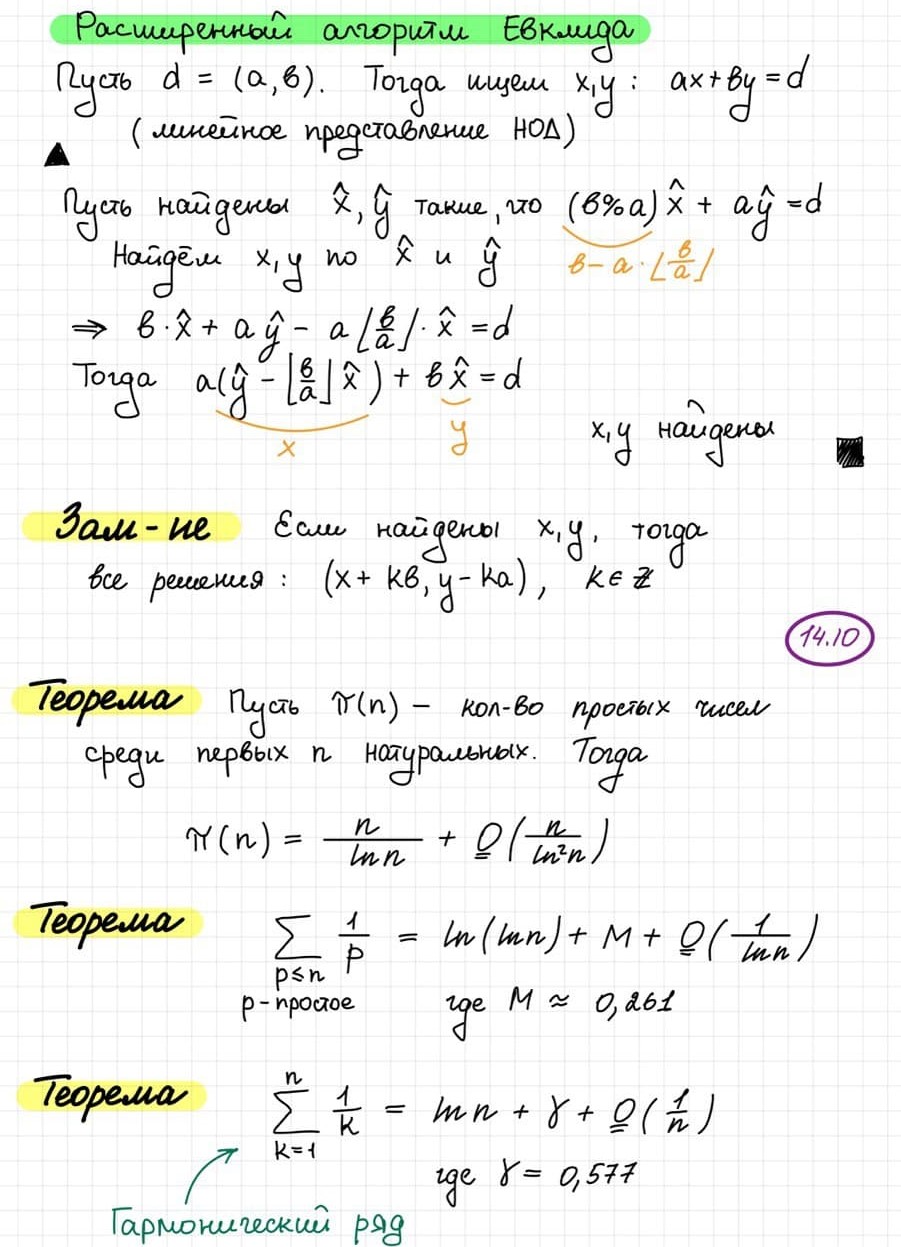 Расширенный алгоритм Евклида
Пусть d = (a, b). Тогда ищем x, y : ax + by = d
(линейное представление НОД)
▲
Пусть найдены x̂, ŷ такие, что (b%a)x̂ + aŷ = d
Найдём x, y по x̂ и ŷ b − a · ⌊b/a⌋
⇒ b · x̂ + aŷ − a⌊b/a⌋ · x̂ = d
Тогда a(ŷ − ⌊b/a⌋x̂) + bx̂ = d
x y x, y найдены
■
Зам-не Если найдены x, y, тогда
все решения : (x + kb, y − ka), k ∈ ℤ
14.10
Теорема Пусть π(n) — кол-во простых чисел
среди первых n натуральных. Тогда
π(n) = n/ln n + O(n/ln²n)
Теорема ∑ 1/p = ln(ln n) + M + O(1/ln n)
p ≤ n
p - простое где M ≈ 0,261
Теорема ∑ₖ₌₁ⁿ 1/k = ln n + γ + O(1/n)
где γ = 0,577
Гармонический ряд